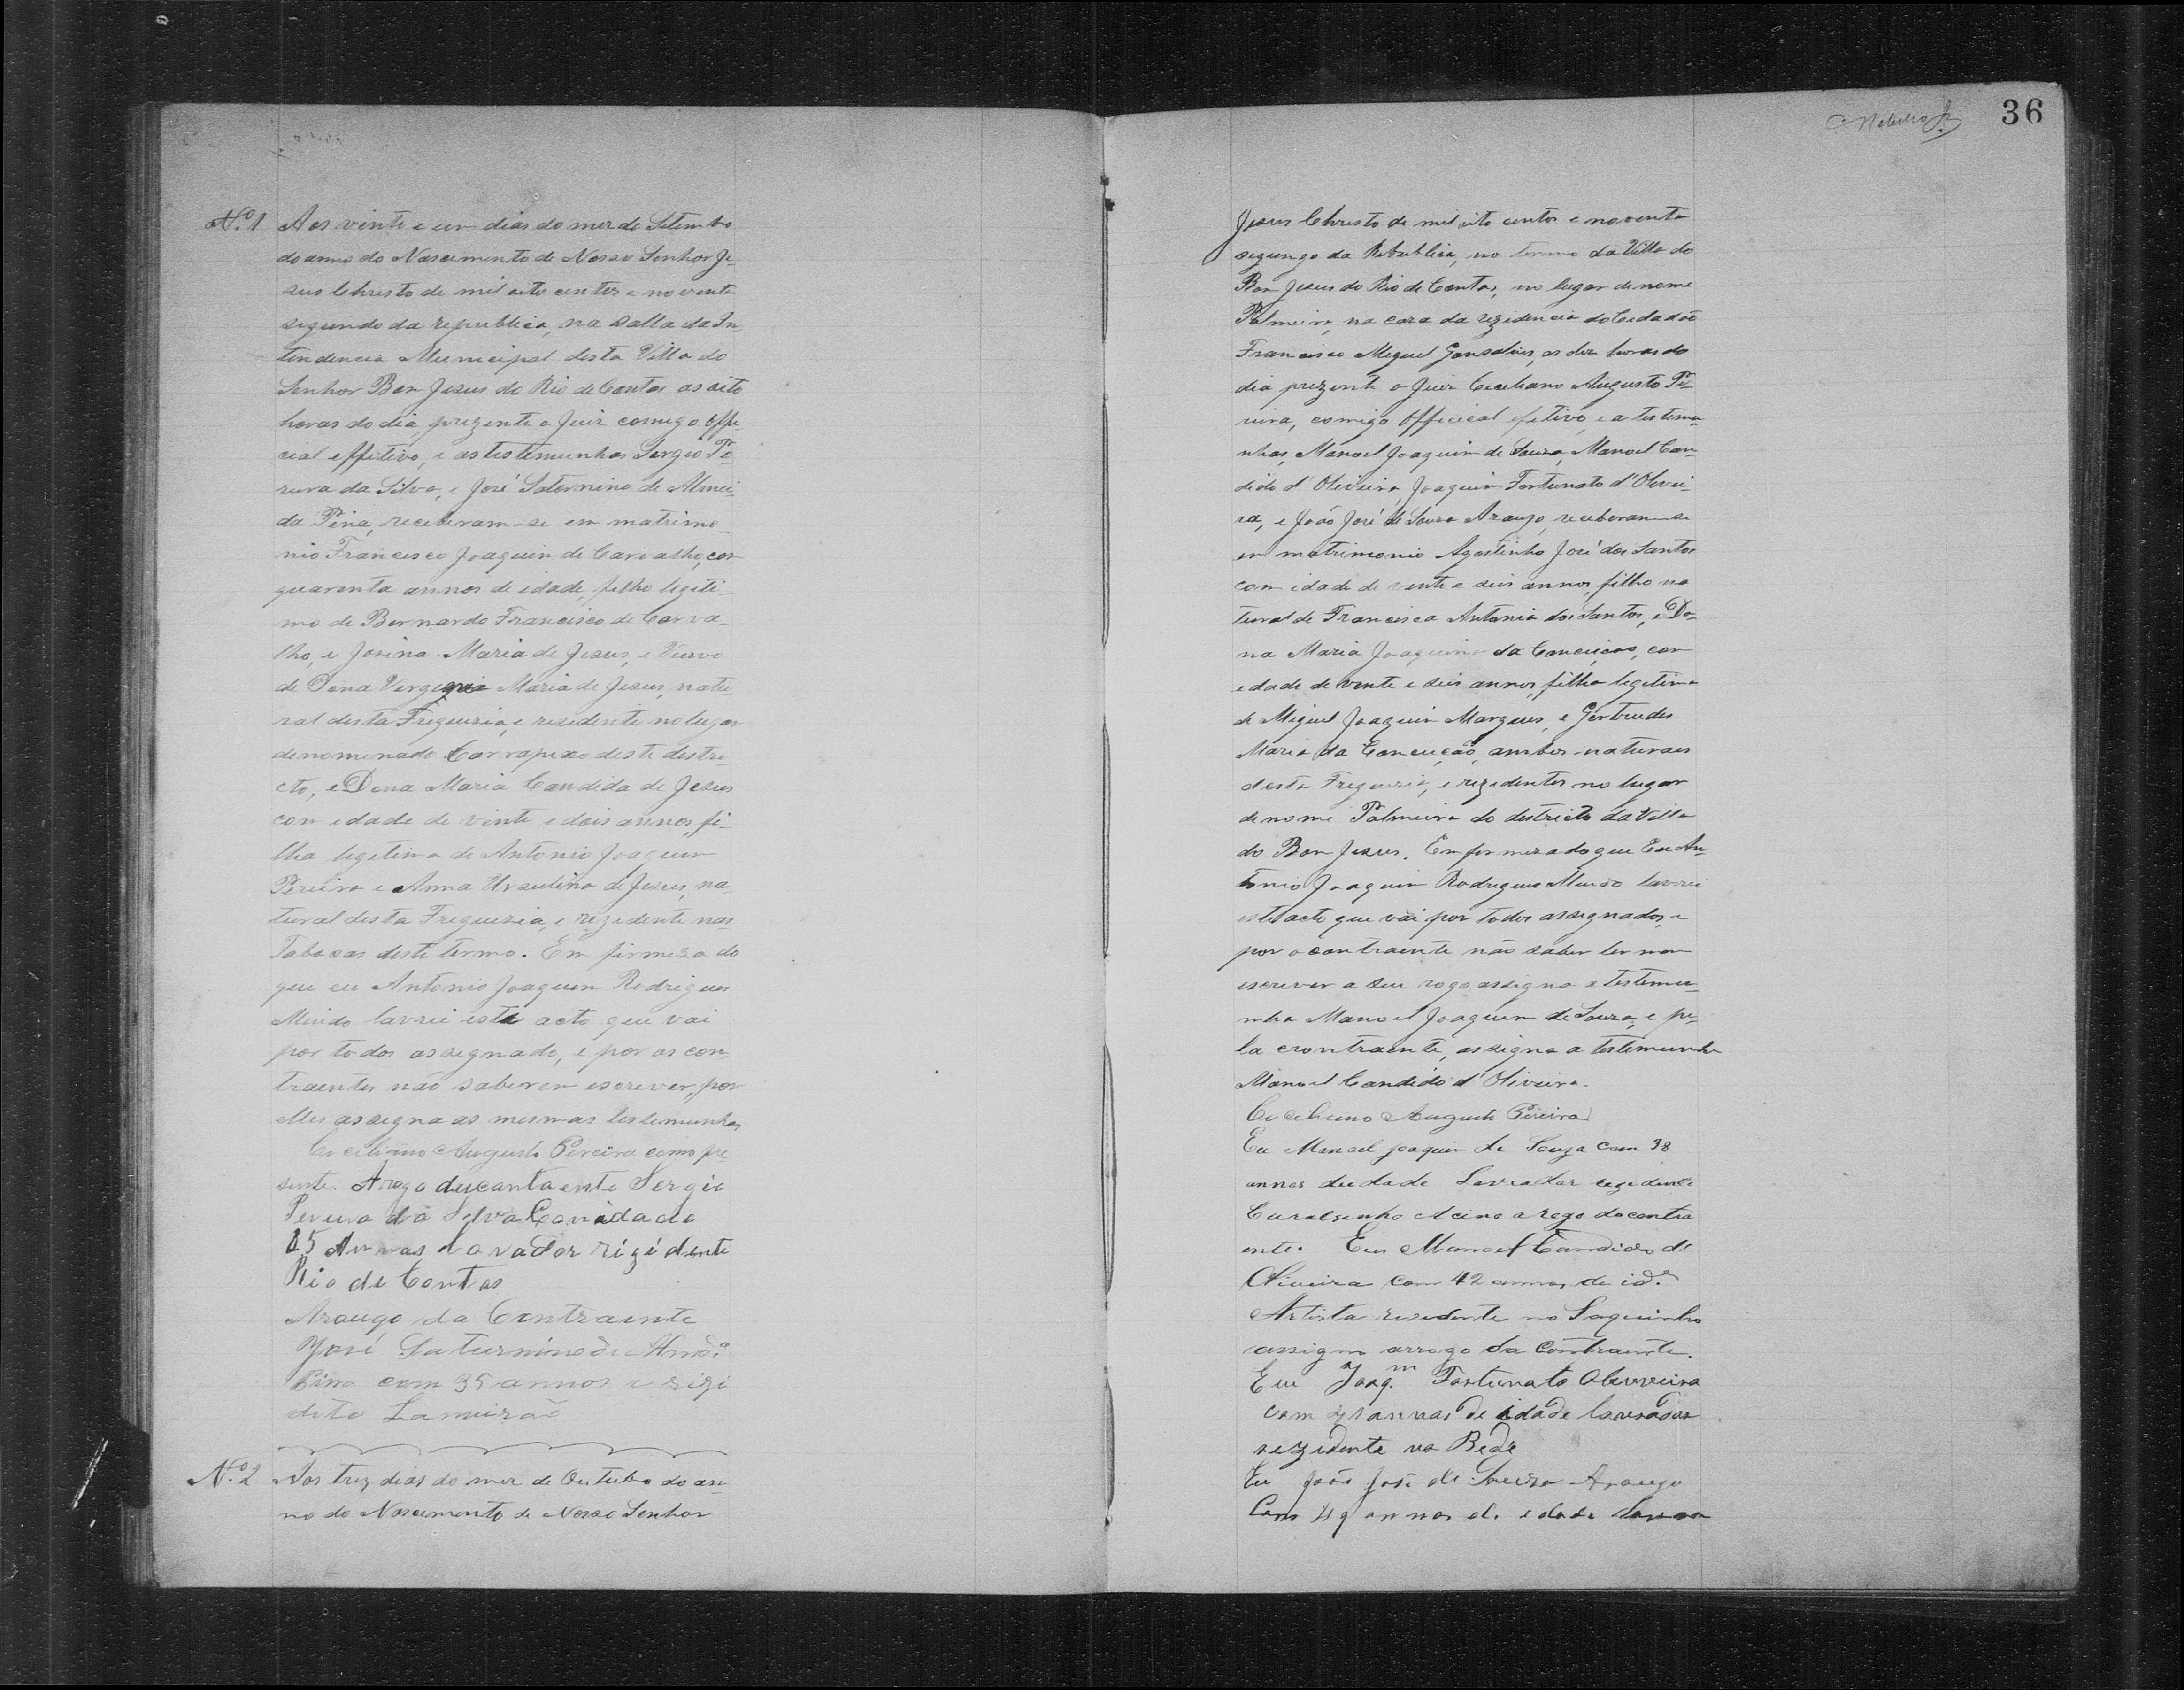 Nº 1 Aos vinte e um dias do mez de Setembro
do anno do Nascimento de Nosso Senhor Je-
sus Christo de mil oito centos e noventa
segundo da republica, na salla da In
tendencia Municipal desta Villa do
Senhor Bom Jesus do Rio de Contas as oito
horas do dia, prezente o Juiz comigo offi-
cial effetivo, e as testemunhas Sergio Pe-
reira da Silva, e José Saternino de Almei-
da Pina, receberam-se em matrimo-
nio Francisco Joaquim de Carvalho, com
quarenta annos de idade, filho legiti-
mo de Bernardo Francisco de Carva-
lho, e Josina Maria de Jesus, e Viuvo
de Dona Maria de Jesus, natu
ral desta Freguezia, e residente no lugar
denominado Carrapixo deste destri-
cto, e Dona Maria Candida de Jesus
com edade de vinte e dois annos, fi-
lha legitima de Antonio Joaquim
Pereira e Anna Ursulina de Jesus, na-
tural desta Freguesia, e rezidente nas
Tabocas deste termo. Em firmeza do
que eu Antonio Joaquim Rodrigues
lavrei este acto que vai
por todos assegnado, e por os con-
traentes não saberem escrever, por
elles assegna as mesmas testemunhas
Ceciliano Augusto Pereira como pre
sente. Arogo ducontaente Sergio
Pereira da Sylva Com idade de
25 Annos Lavador rizidente
Rio de Contas
Arougo da Contraente
José Saturnino de Almdª
Pina com 35 annos e rizi
dite Lameirão
Nº 2 Aos trez dias do mez de Outubro do an-
no do Nascimento de Nosso Senhor
36
Jesus Christo de mil oito centos e noventa
segungo da Republica, no termo da Villa do
Bom Jesus do Rio de Contas, no lugar denome
Palmeira, na caza da rezidencia do Cidadão
Francisco Miguel Gonsalves, as dez horas do
dia prezente o Juiz Ceciliano Augusto Pe-
reira, comigo Official efetivo, e a testemu-
nhas, Manoel Joaquim de Souza, Manoel Can-
dido d'Oliveira, Joaquim Fortunato d'Olivei-
ra, e João José de Souza Araujo, receberam-se
em matrimonio Agostinho José dos Santos
com idade de vinte e seis annos, filho na
tural de Francisca Antonia dos Santos, e Do-
na Maria Joaquina da Conceição, com
edade de vinte e seis annos, filha legitima
de Miguel Joaquim Marques, e Gertrudes
Maria da Conceição, ambos naturaes
desta Freguezia, e rezidentes no lugar
denome Palmeira do destricto da Villa
do Bom Jesus. Em firmeza do que Eu An-
tonio Joaquim Rodrigues lavrei
este acto que vai por todos assegnados, e
por o contraente não saber ler nem
escrever a seu rogo assigna a testemu-
nha Manoel Joaquim de Souza, e pe-
la crontraente, assigna a testemunha
Manoel Candido d'Oliveira.
Ceciliano Augusto Pereira
Eu Manoel Joaquim de Souza com 38
annos deidade Lavrador rezidente
Curalsinho arogo docontra
ente. Eu Manoel Candido de
Oliveira com 42 annos de idᵉ
Artista residente no Saquinho
assigno arrogo da Contraente.
Eu Joaq.ᵐ Fortunato Oliveira
com annos de idade lavrador
rezidente na Rede
Eu João José de Souza Araugo
Com 49 annos de edade Lavra